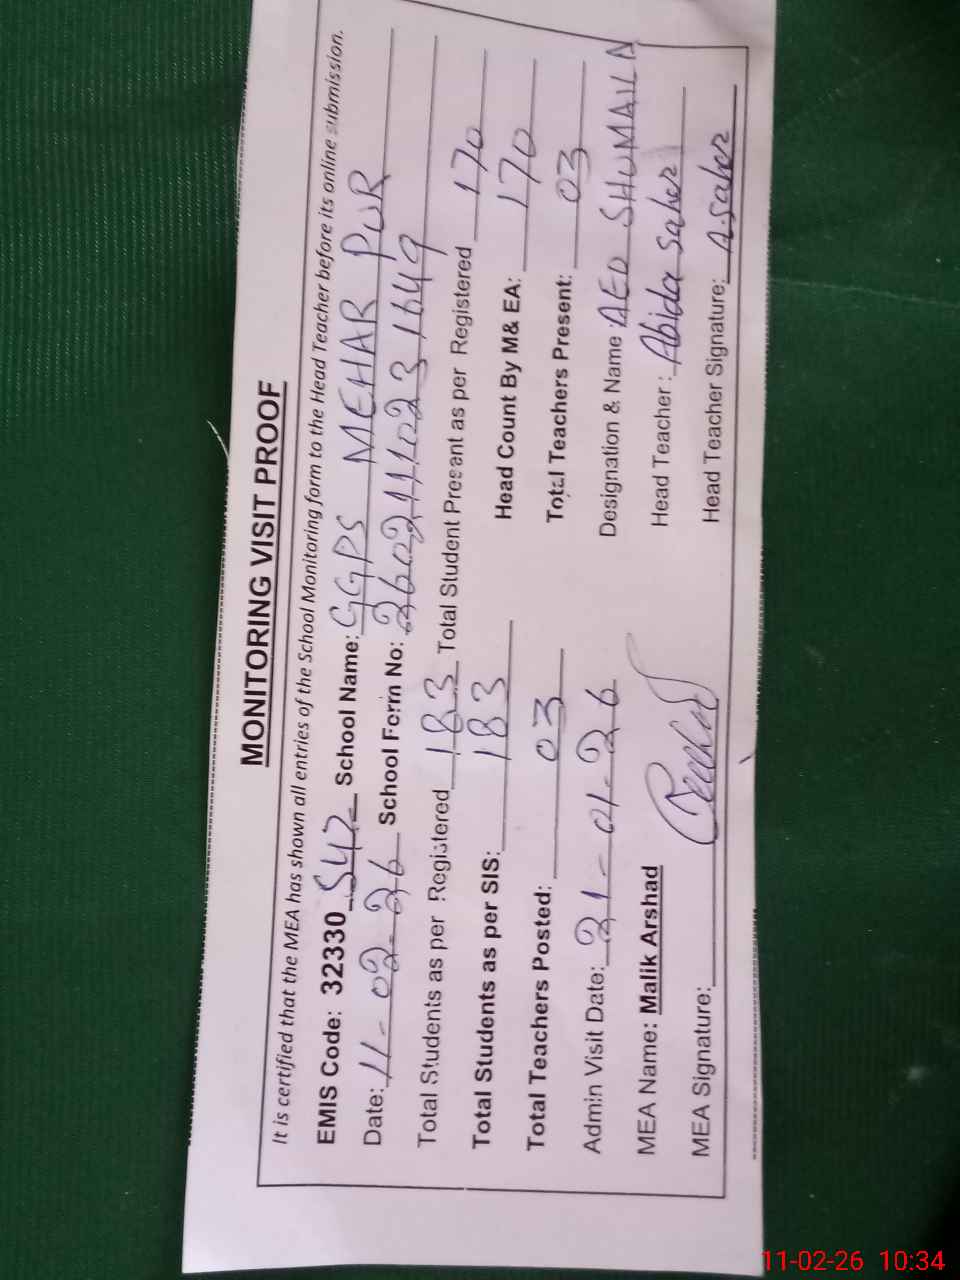 MONITORING VISIT PROOF
It is certified that the MEA has shown all entries of the School Monitoring form to the Head Teacher before its online submission.
EMIS Code: 32330 542 School Name: GGPS MEHAR PUR
Date: 11-02-26 School Form No: 26021110231649
Total Students as per Registered 183 Total Student Present as per Registered 170
Total Students as per SIS: 183 Head Count By M& EA: 170
Total Teachers Posted: 03 Total Teachers Present: 03
Admin Visit Date: 21-01-26 Designation & Name: AEO SHUMAILA
MEA Name: Malik Arshad Head Teacher: Abida Saher
MEA Signature: Head Teacher Signature: A.Saher
11-02-26 10:34